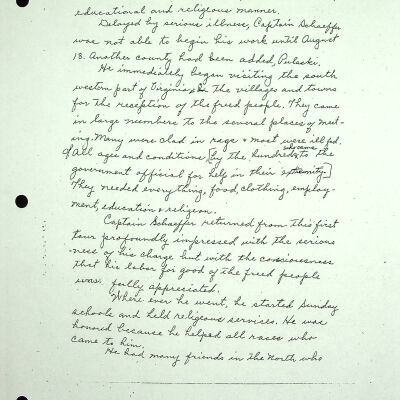 educational and religious manner.
Delayed by serious illness, Captain Schaeffer
was not able to begin his work until August
18. Another county had been added, Pulaski.
He immediately began visiting the south
western part of Virginia in the villages and towns
for the reception of the freed people. They came
in large numbers to the several places of meet-
ing. Many were clad in rags & most were ill fed.
Of all ages and conditions, [by the hundreds who came to the
government official for help in their extremity.]
They needed everything, food, clothing, employ-
ment, education & religion.
Captain Schaeffer returned from this first
tour profoundly impressed with the serious
ness of his charge but with the consciousness
that his labor for good of the freed people
was fully appreciated.
Where ever he went, he started Sunday
schools and held religious services. He was
honored because he helped all races who
came to him.
He had many friends in the North who